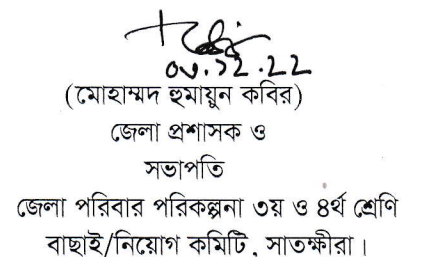 ০৮.১২.২২
(মোহাম্মদ হুমায়ুন কবির)
জেলা প্রশাসক ও
সভাপতি
জেলা পরিবার পরিকল্পনা ৩য় ও ৪র্থ শ্রেণি
বাছাই/নিয়োগ কমিটি, সাতক্ষীরা।